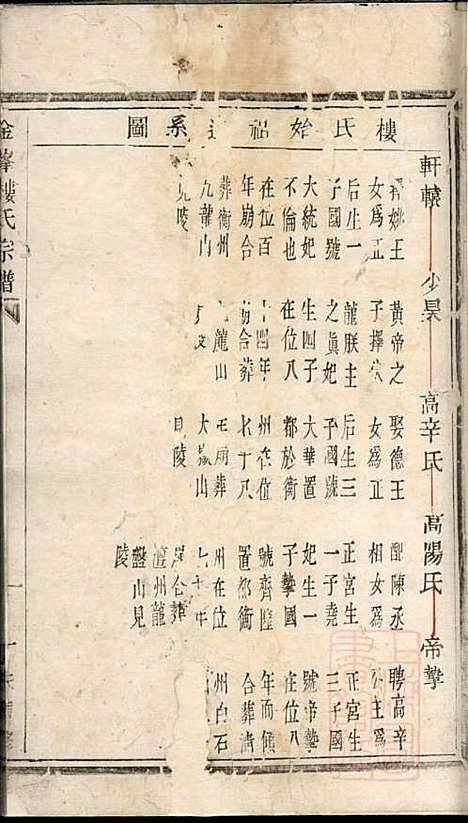 樓氏始祖 系圖
金峯樓氏宗譜
軒轅 少昊 高辛氏 高陽氏 帝摯
姚王
女為正
后生一
子國號
大統妃
不倫也
在位百
年崩合
葬衡州
九龍山
見陵
黃帝之
子擇
龍朕主
之眞妃
生四子
在位八
十四年
合葬
龍山
娶德王
女為正
后生三
子國號
大華置
都於衡
州在位
七十八
葬
大 山
見陵
配陳丞
相女為
正宮生
一子堯
妃生一
子摯國
號齊隆
置都衡
州在位
七十年
合葬
灃州龍
盤山見
陵
聘高辛
公主為
正宮生
三子國
號帝摯
在位八
年而傾
合葬濟
州白石